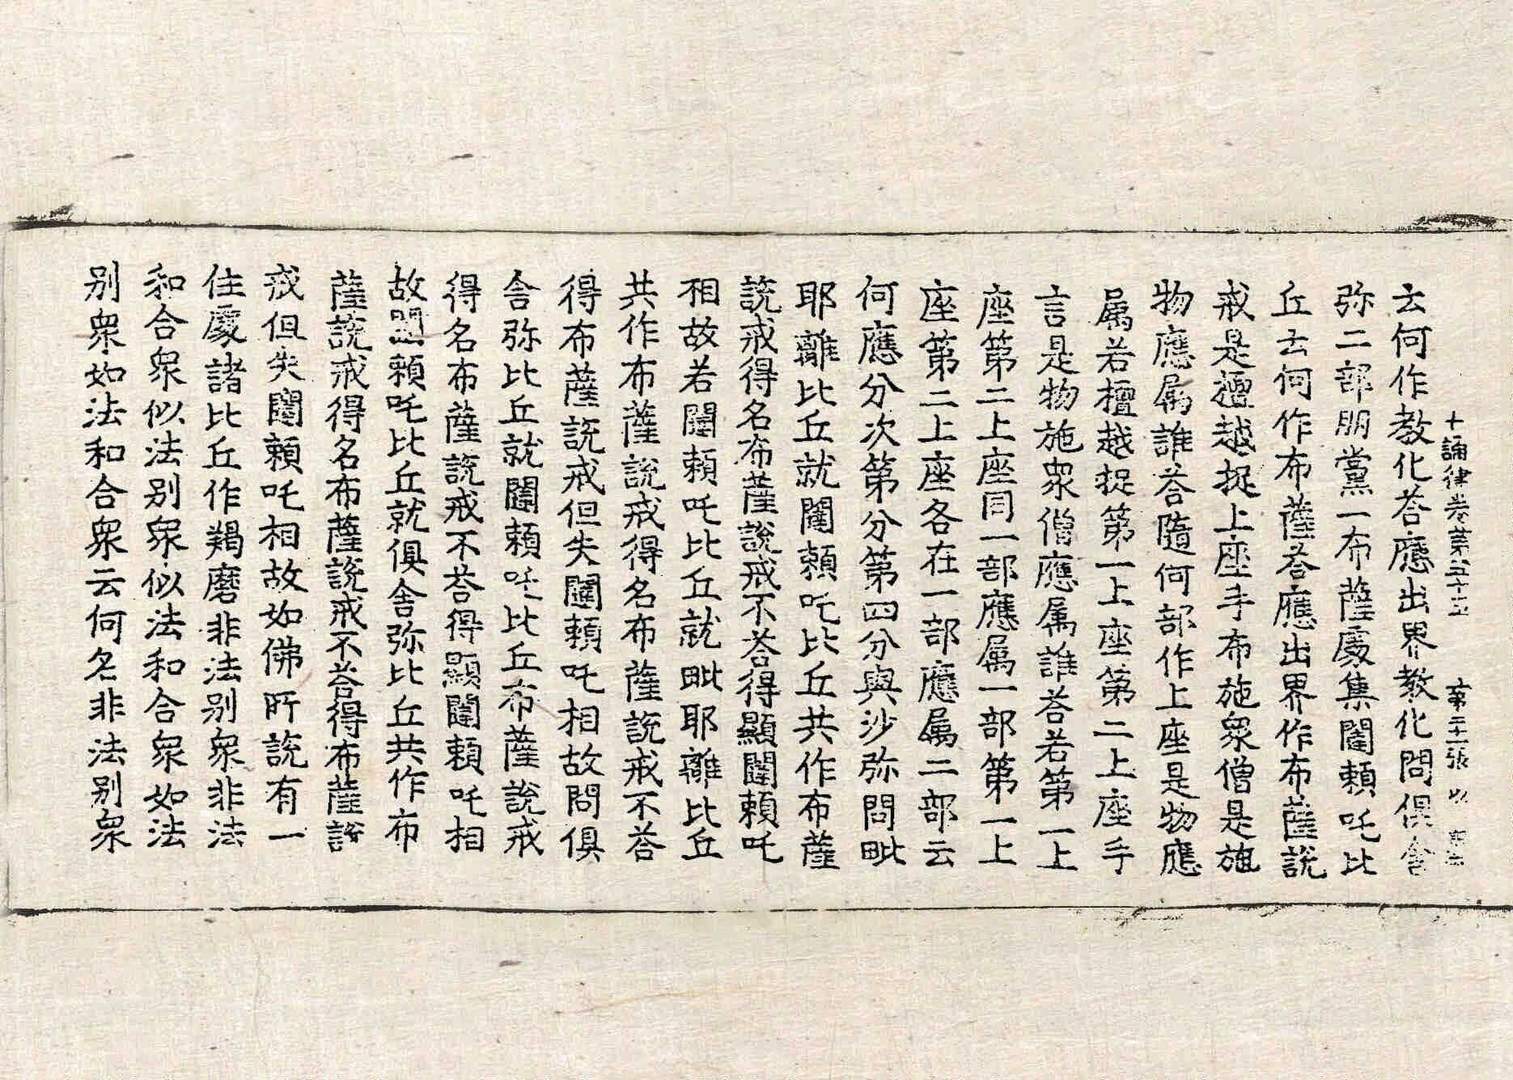 十誦律卷第五十五　第二十一張　以
云何作教化荅應出界教化問俱舍
弥二部朋黨一布薩處集闥賴吒比
丘云何作布薩荅應出界作布薩說
戒是檀越捉上座手布施衆僧是施
物應属誰荅隨何部作上座是物應
属若檀越捉第一上座第二上座手
言是物施衆僧應属誰荅若第一上
座第二上座同一部應属一部第一上
座第二上座各在一部應属二部云
何應分次第分第四分與沙弥問毗
耶離比丘就闥賴吒比丘共作布薩
說戒得名布薩說戒不荅得顯闥賴吒
相故若闥賴吒比丘就毗耶離比丘
共作布薩說戒得名布薩說戒不荅
得布薩說戒但失闥賴吒相故問俱
舍弥比丘就闥賴吒比丘布薩說戒
得名布薩說戒不荅得顯闥賴吒相
故闥賴吒比丘就俱舍弥比丘共作布
薩說戒得名布薩說戒不荅得布薩說
戒但失闥賴吒相故如佛所說有一
住處諸比丘作羯磨非法別衆非法
和合衆似法別衆似法和合衆如法
別衆如法和合衆云何名非法別衆